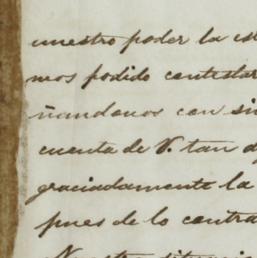 nuestro poder la es
mos podido contestar
ñandonos con si
cuenta de V. tan d
graciadamente la
pues de lo contra
Nuestra situacio